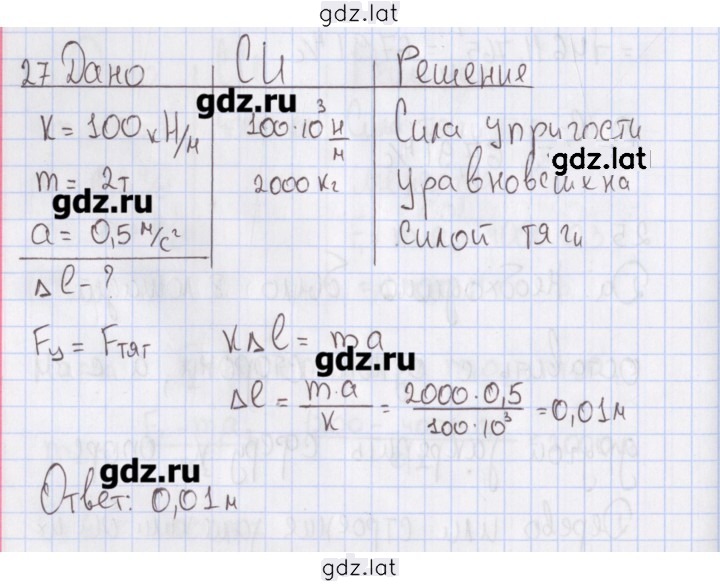 gdz.lat
27 Дано СИ Решение
gdz.ru
k = 100 кН/м 100·10³ Н/м Сила упругости
gdz.lat
m = 2т 2000 кг уравновешена
gdz.ru
a = 0,5 м/с² силой тяги
Δl - ?
Fу = Fтяг kΔl = ma
gdz.ru
Δl = m·a/k = 2000·0,5/100·10³ = 0,01 м
gdz.ru
Ответ: 0,01 м
gdz.lat